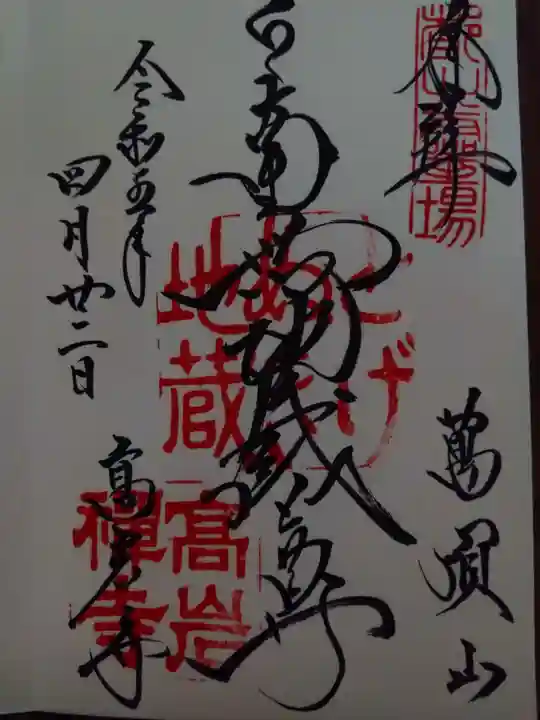 奉拝
霊場
萬頂山
地蔵尊
とげ
ぬき
地蔵
令和五年
四月廿二日
高岩寺
髙岩
禅寺